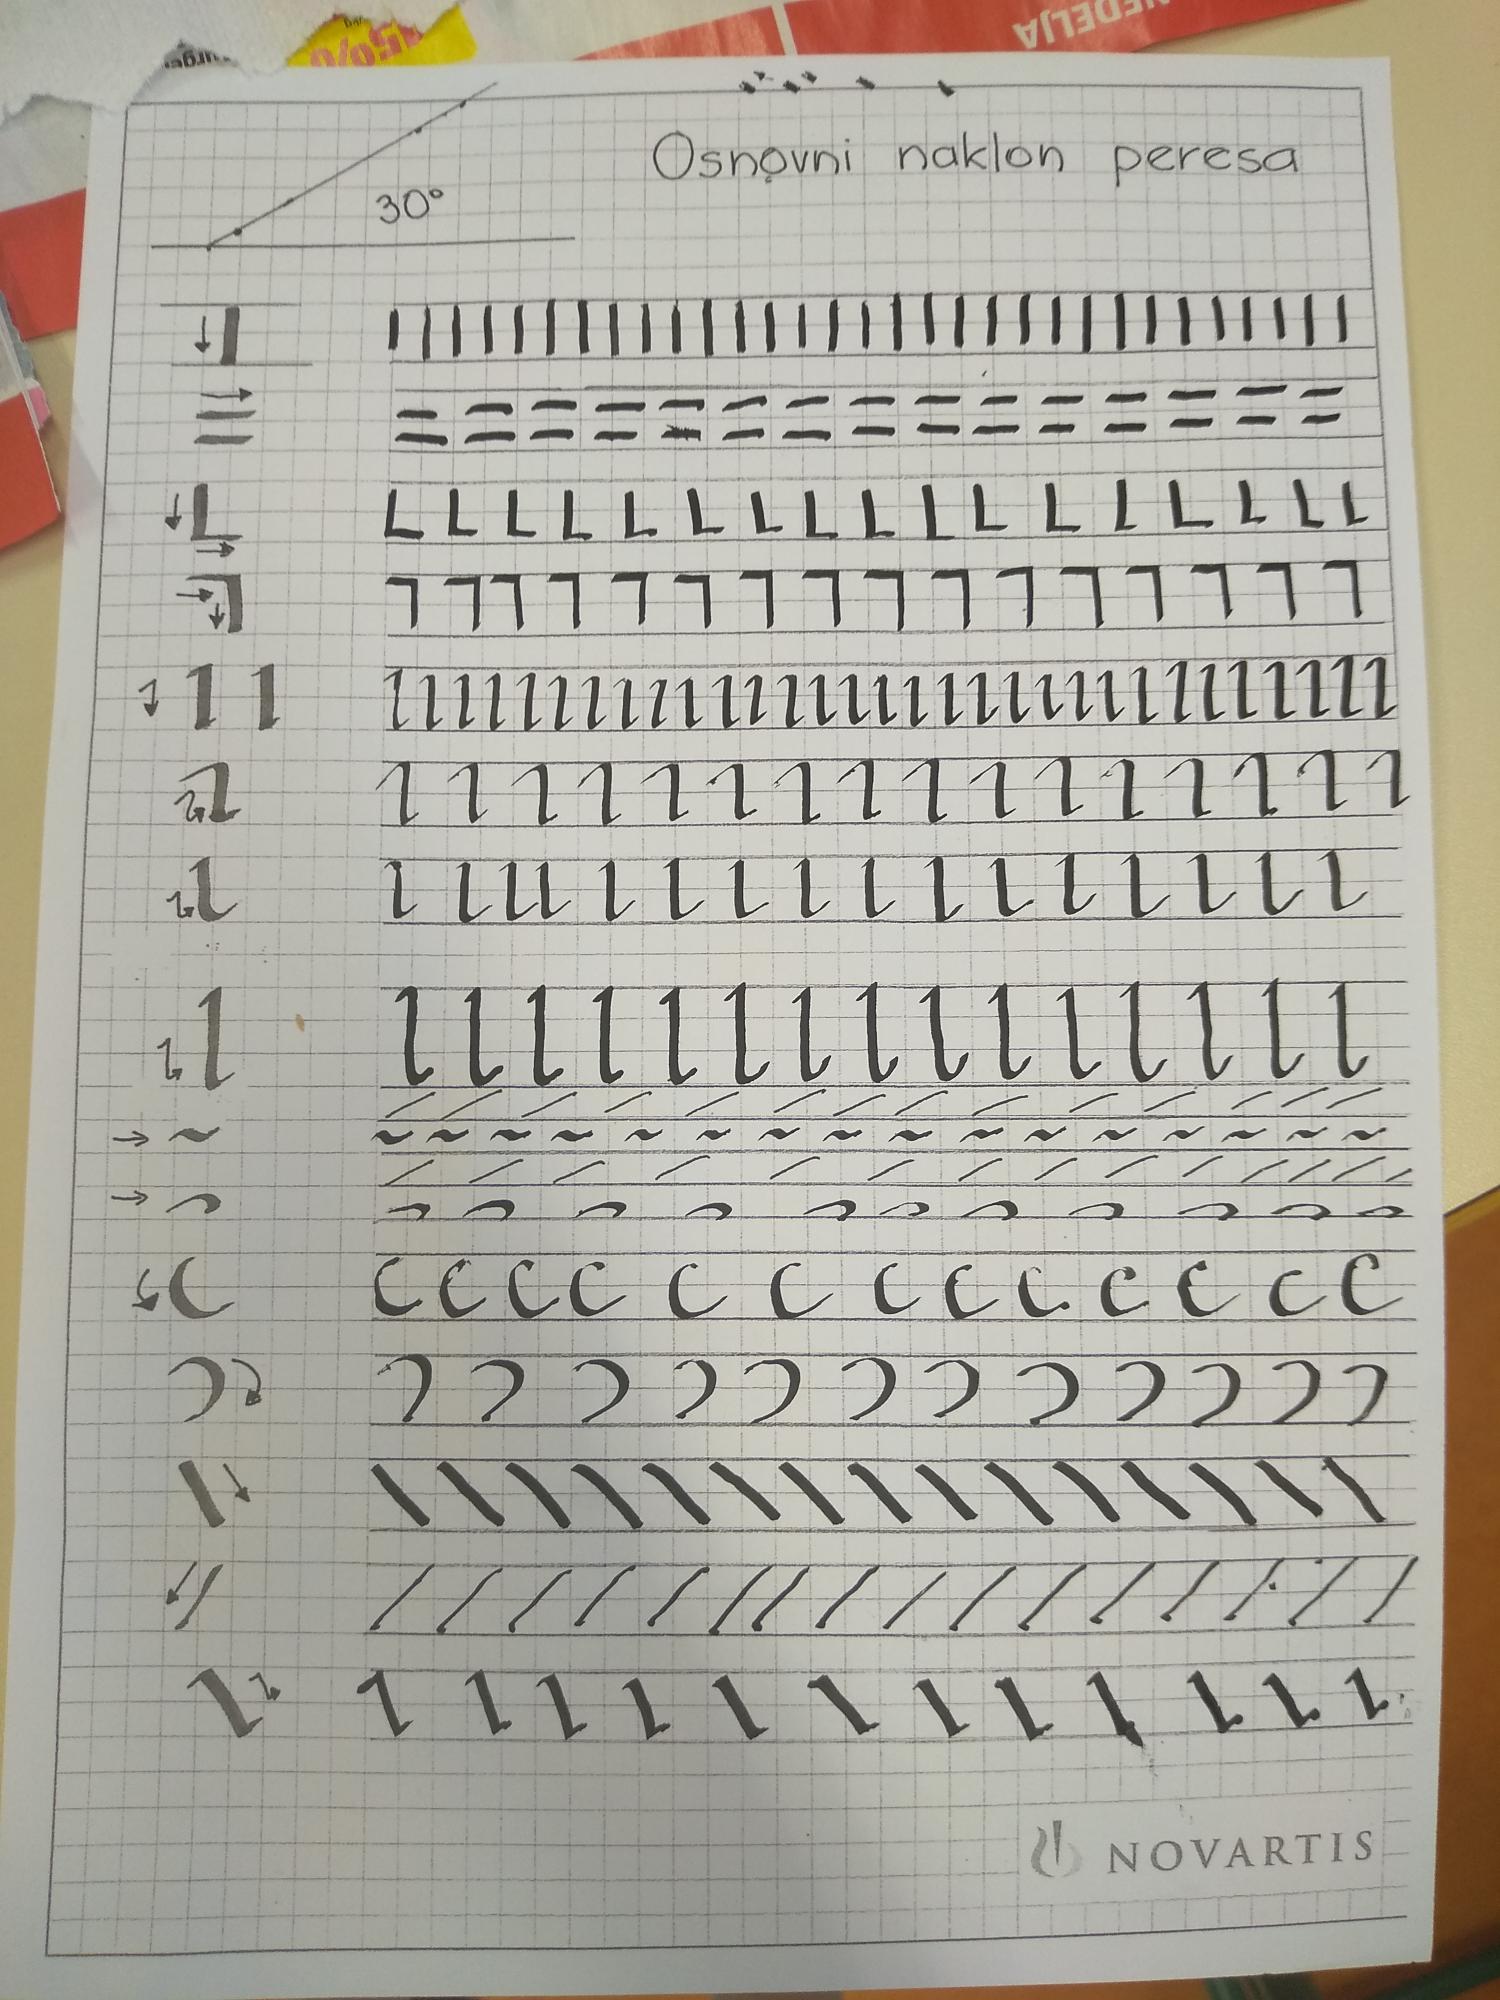 NEDELJA
Osnovni naklon peresa
30°
NOVARTIS